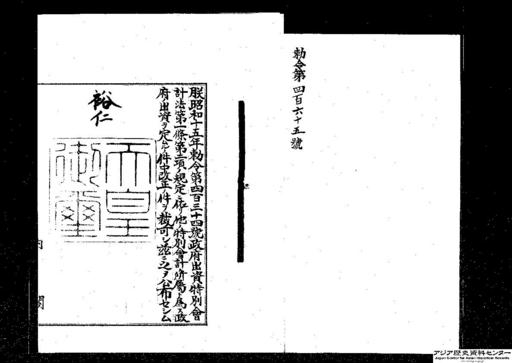 勅令第四百六十五號
朕昭和十五年勅令第四百三十四號政府出資特別會
計法第一條第二項ノ規定ニ依リ他ノ特別會計所屬ノ爲ス政
府出資ヲ定ムル件中改正ノ件ヲ裁可シ茲ニ之ヲ公布セシム
裕仁
天皇御璽
内閣
アジア歴史資料センター
Japan Center for Asian Historical Records